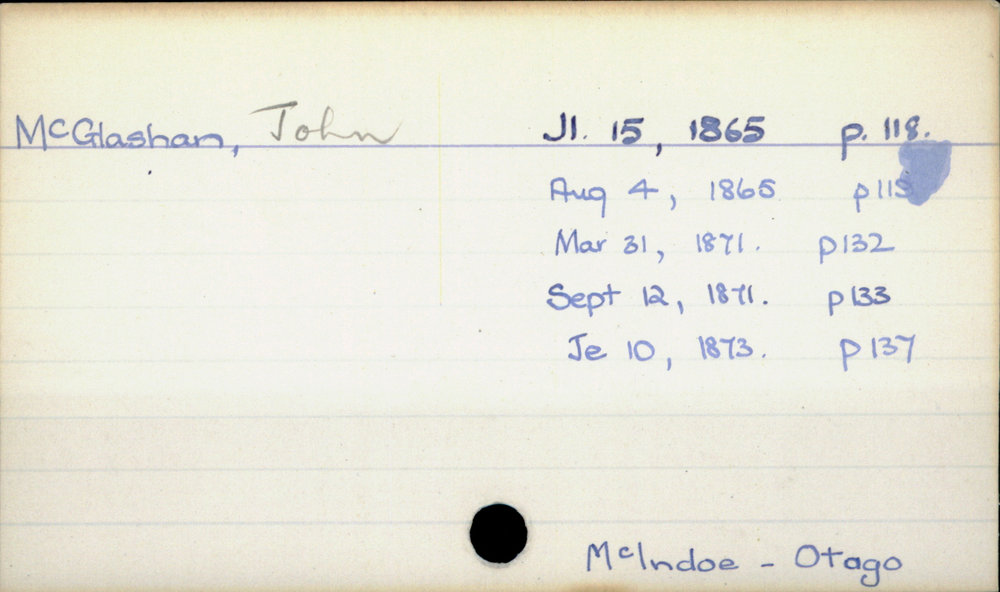 McGlashan, John Jl. 15, 1865 p. 118.
Aug 4, 1865 p118
Mar 31, 1871. p132
Sept 12, 1871. p133
Je 10, 1873. p137
McIndoe - Otago